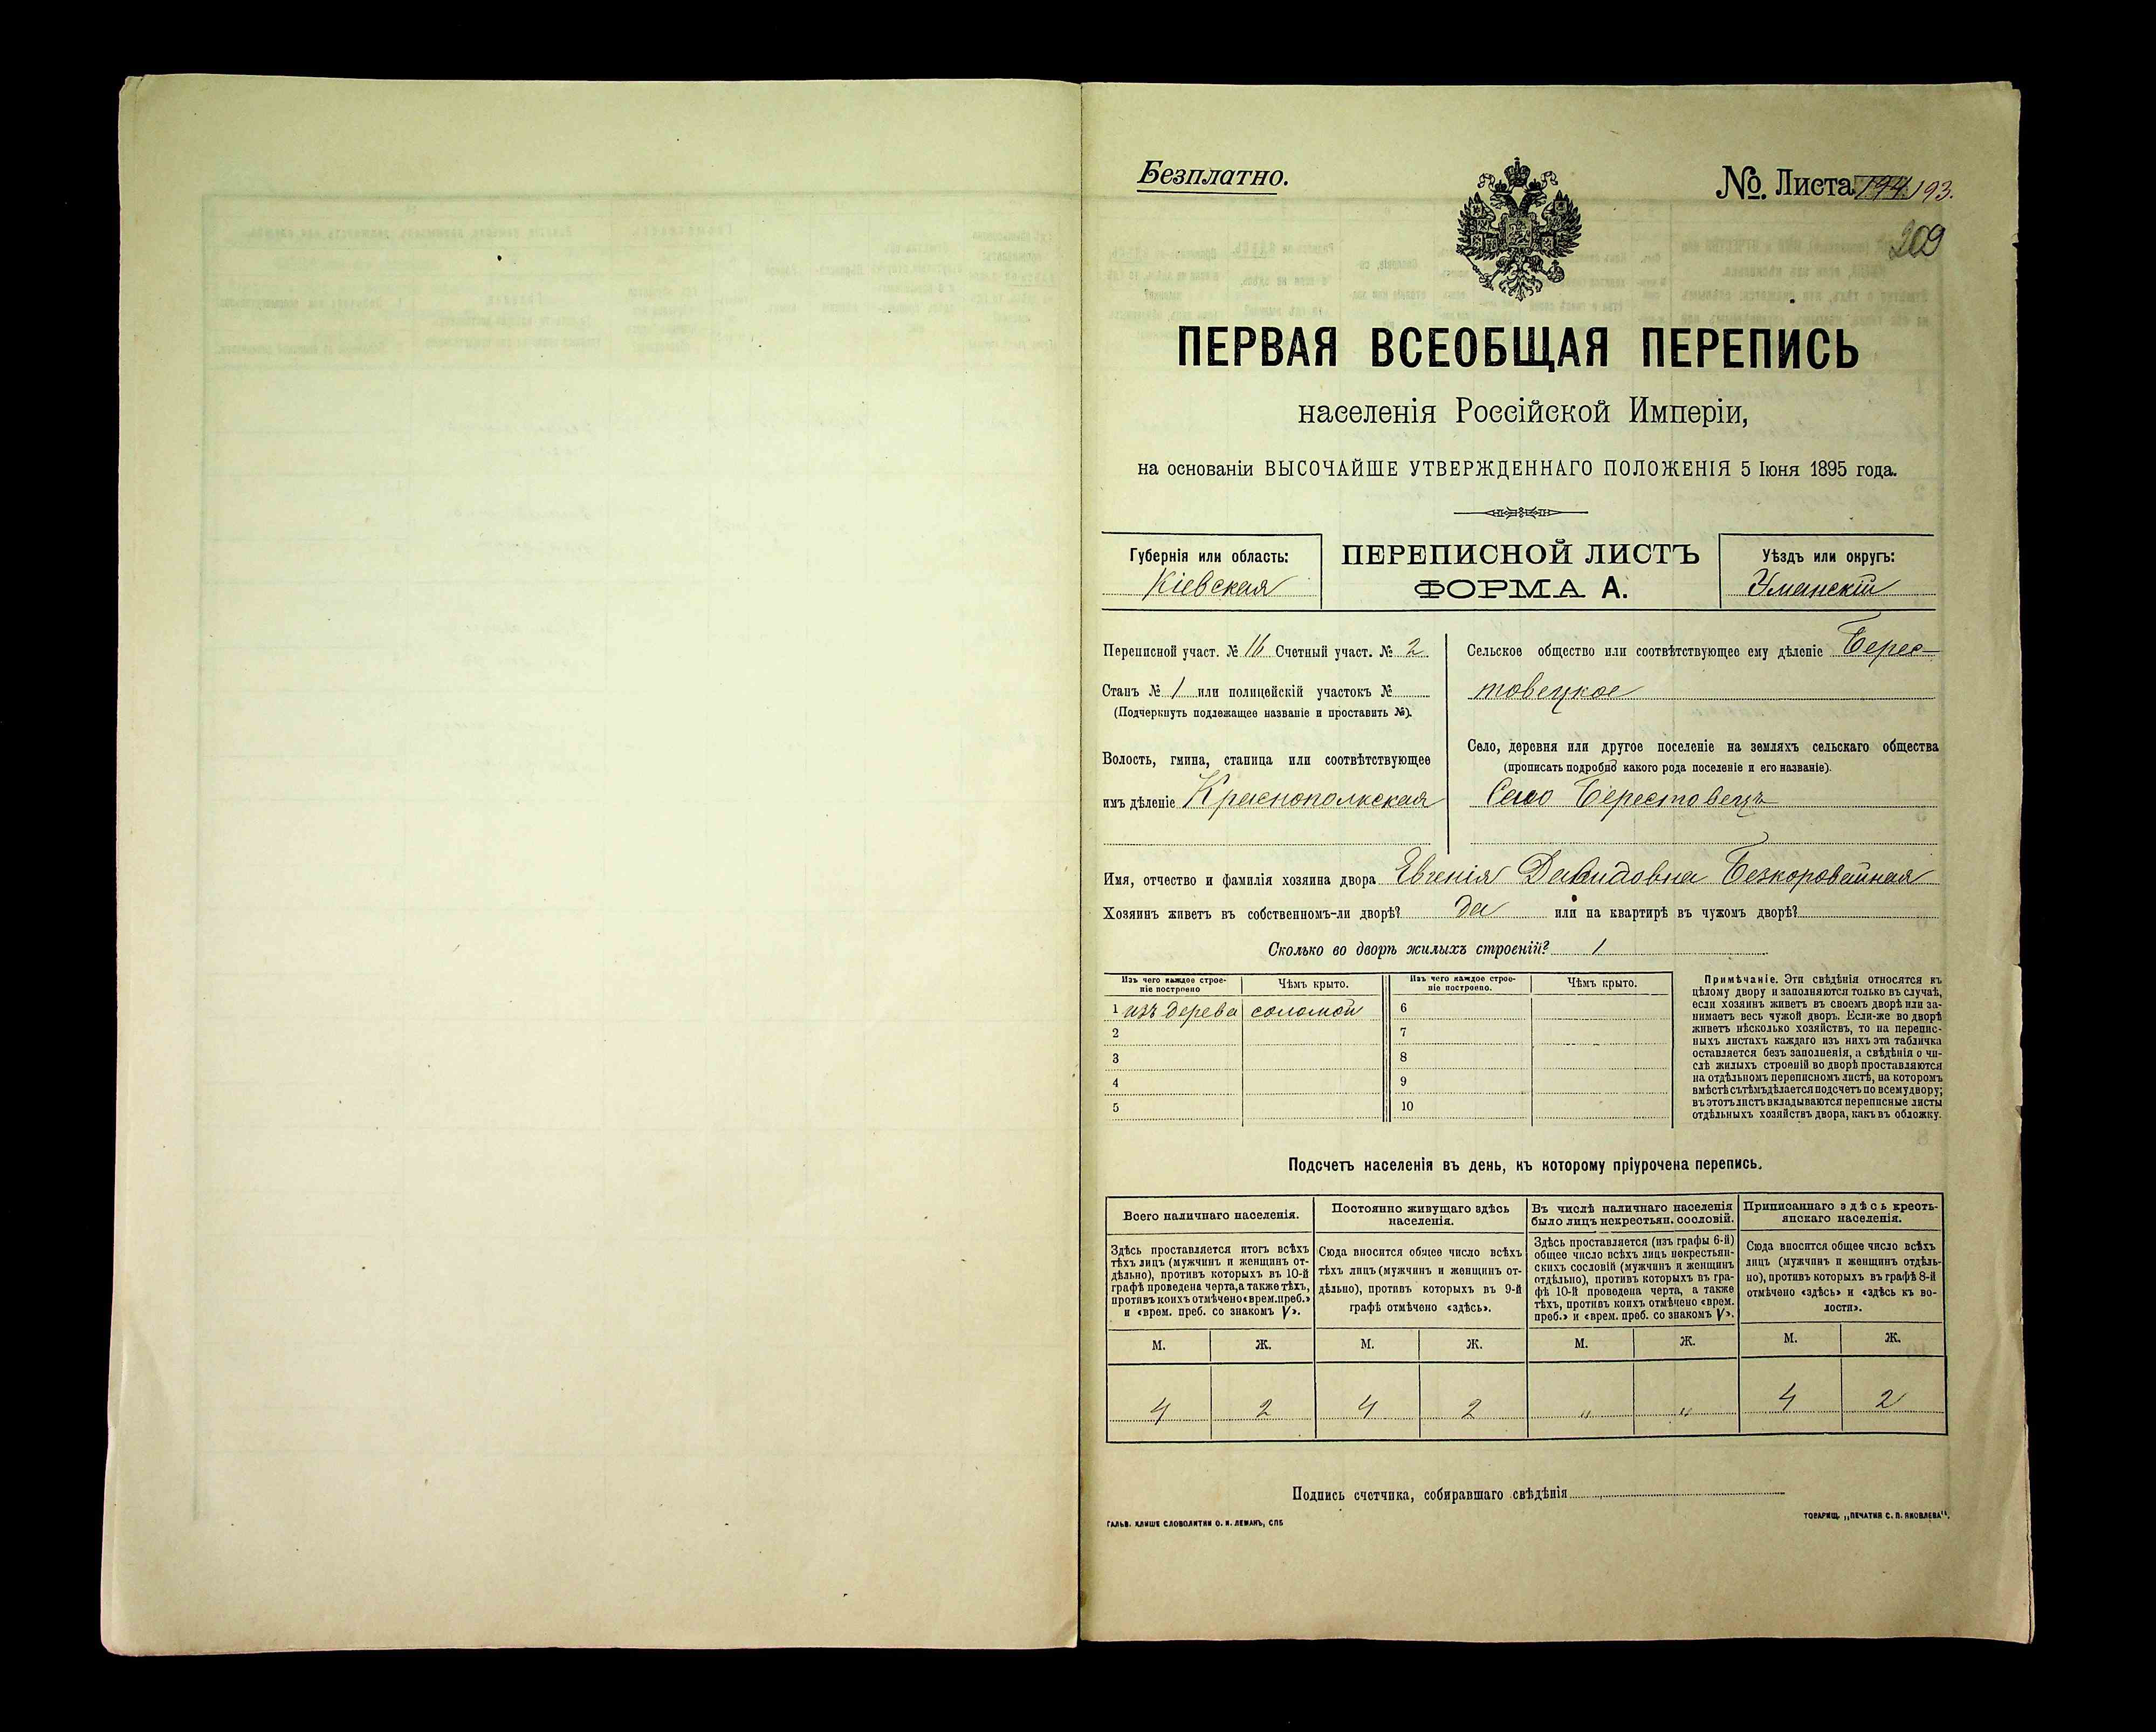 Безплатно.
№. Листа 193.
209
ПЕРВАЯ ВСЕОБЩАЯ ПЕРЕПИСЬ
населенія Россійской Имперіи,
на основаніи ВЫСОЧАЙШЕ УТВЕРЖДЕННАГО ПОЛОЖЕНІЯ 5 Іюня 1895 года.
Губернія или область:
Кіевская
ПЕРЕПИСНОЙ ЛИСТЪ
ФОРМА А.
Уѣздъ или округъ:
Уманскій
Переписной участ. № 16 Счетный участ. № 2
Станъ № 1 или полицейскій участокъ №
(Подчеркнуть подлежащее названіе и проставить №).
Волость, гмина, станица или соотвѣтствующее
имъ дѣленіе Краснополкская
Сельское общество или соотвѣтствующее ему дѣленіе Берес-
товецкое
Село, деревня или другое поселеніе на земляхъ сельскаго общества
(прописать подробно какого рода поселеніе и его названіе).
Село Берестовецъ
Имя, отчество и фамилія хозяина двора Евгенія Давидовна Безкоровайная
Хозяинъ живетъ въ собственномъ-ли дворѣ? да или на квартирѣ въ чужомъ дворѣ?
Сколько во дворѣ жилыхъ строеній? 1
Изъ чего каждое строе-
ніе построено
Чѣмъ крыто.
Изъ чего каждое строе-
ніе построено.
Чѣмъ крыто.
1 изъ дерева соломой 6
2 7
3 8
4 9
5 10
Примѣчаніе. Эти свѣдѣнія относятся къ
цѣлому двору и заполняются только въ случаѣ,
если хозяинъ живетъ въ своемъ дворѣ или за-
нимаетъ весь чужой дворъ. Если-же во дворѣ
живетъ нѣсколько хозяйствъ, то на перепис-
ныхъ листахъ каждаго изъ нихъ эта табличка
оставляется безъ заполненія, а свѣдѣнія о чи-
слѣ жилыхъ строеній во дворѣ проставляются
на отдѣльномъ переписномъ листѣ, на которомъ
вмѣстѣ съ тѣмъ дѣлается подсчетъ по всему двору;
въ этотъ листъ вкладываются переписные листы
отдѣльныхъ хозяйствъ двора, какъ въ обложку.
Подсчетъ населенія въ день, къ которому пріурочена перепись.
Всего наличнаго населенія.
Здѣсь проставляется итогъ всѣхъ
тѣхъ лицъ (мужчинъ и женщинъ от-
дѣльно), противъ которыхъ въ 10-й
графѣ проведена черта, а также тѣхъ,
противъ коихъ отмѣчено «врем. преб.»
и «врем. преб. со знакомъ V».
Постоянно живущаго здѣсь
населенія.
Сюда вносится общее число всѣхъ
тѣхъ лицъ (мужчинъ и женщинъ от-
дѣльно), противъ которыхъ въ 9-й
графѣ отмѣчено «здѣсь».
Въ числѣ наличнаго населенія
было лицъ некрестьян. сословій.
Здѣсь проставляется (изъ графы 6-й)
общее число всѣхъ лицъ некрестьян-
скихъ сословій (мужчинъ и женщинъ
отдѣльно), противъ которыхъ въ гра-
фѣ 10-й проведена черта, а также
тѣхъ, противъ коихъ отмѣчено «врем.
преб.» и «врем. преб. со знакомъ V».
Приписаннаго здѣсь кресть-
янскаго населенія.
Сюда вносится общее число всѣхъ
лицъ (мужчинъ и женщинъ отдѣль-
но), противъ которыхъ въ графѣ 8-й
отмѣчено «здѣсь» и «здѣсь къ во-
лости».
М. Ж. М. Ж. М. Ж. М. Ж.
4 2 4 2 " " 4 2
Подпись счетчика, собиравшаго свѣдѣнія
ГАЛЬВ. КЛИШЕ СЛОВОЛИТНИ О. И. ЛЕМАНЪ, СПБ
ТОВАРИЩ. „ПЕЧАТНЯ С. П. ЯКОВЛЕВА".